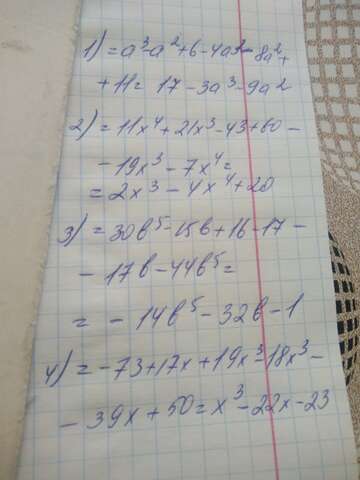 1) = a³-a²+6-4a³-8a²+
+11= 17-3a³-9a²
2) = 11x⁴+21x³-43+60-
-19x³-7x⁴=
= 2x³-4x⁴+20
3) = 30b⁵-15b+16-17-
-17b-44b⁵=
= -14b⁵-32b-1
4) = -73+17x+19x³-18x³-
-39x+50=x³-22x-23